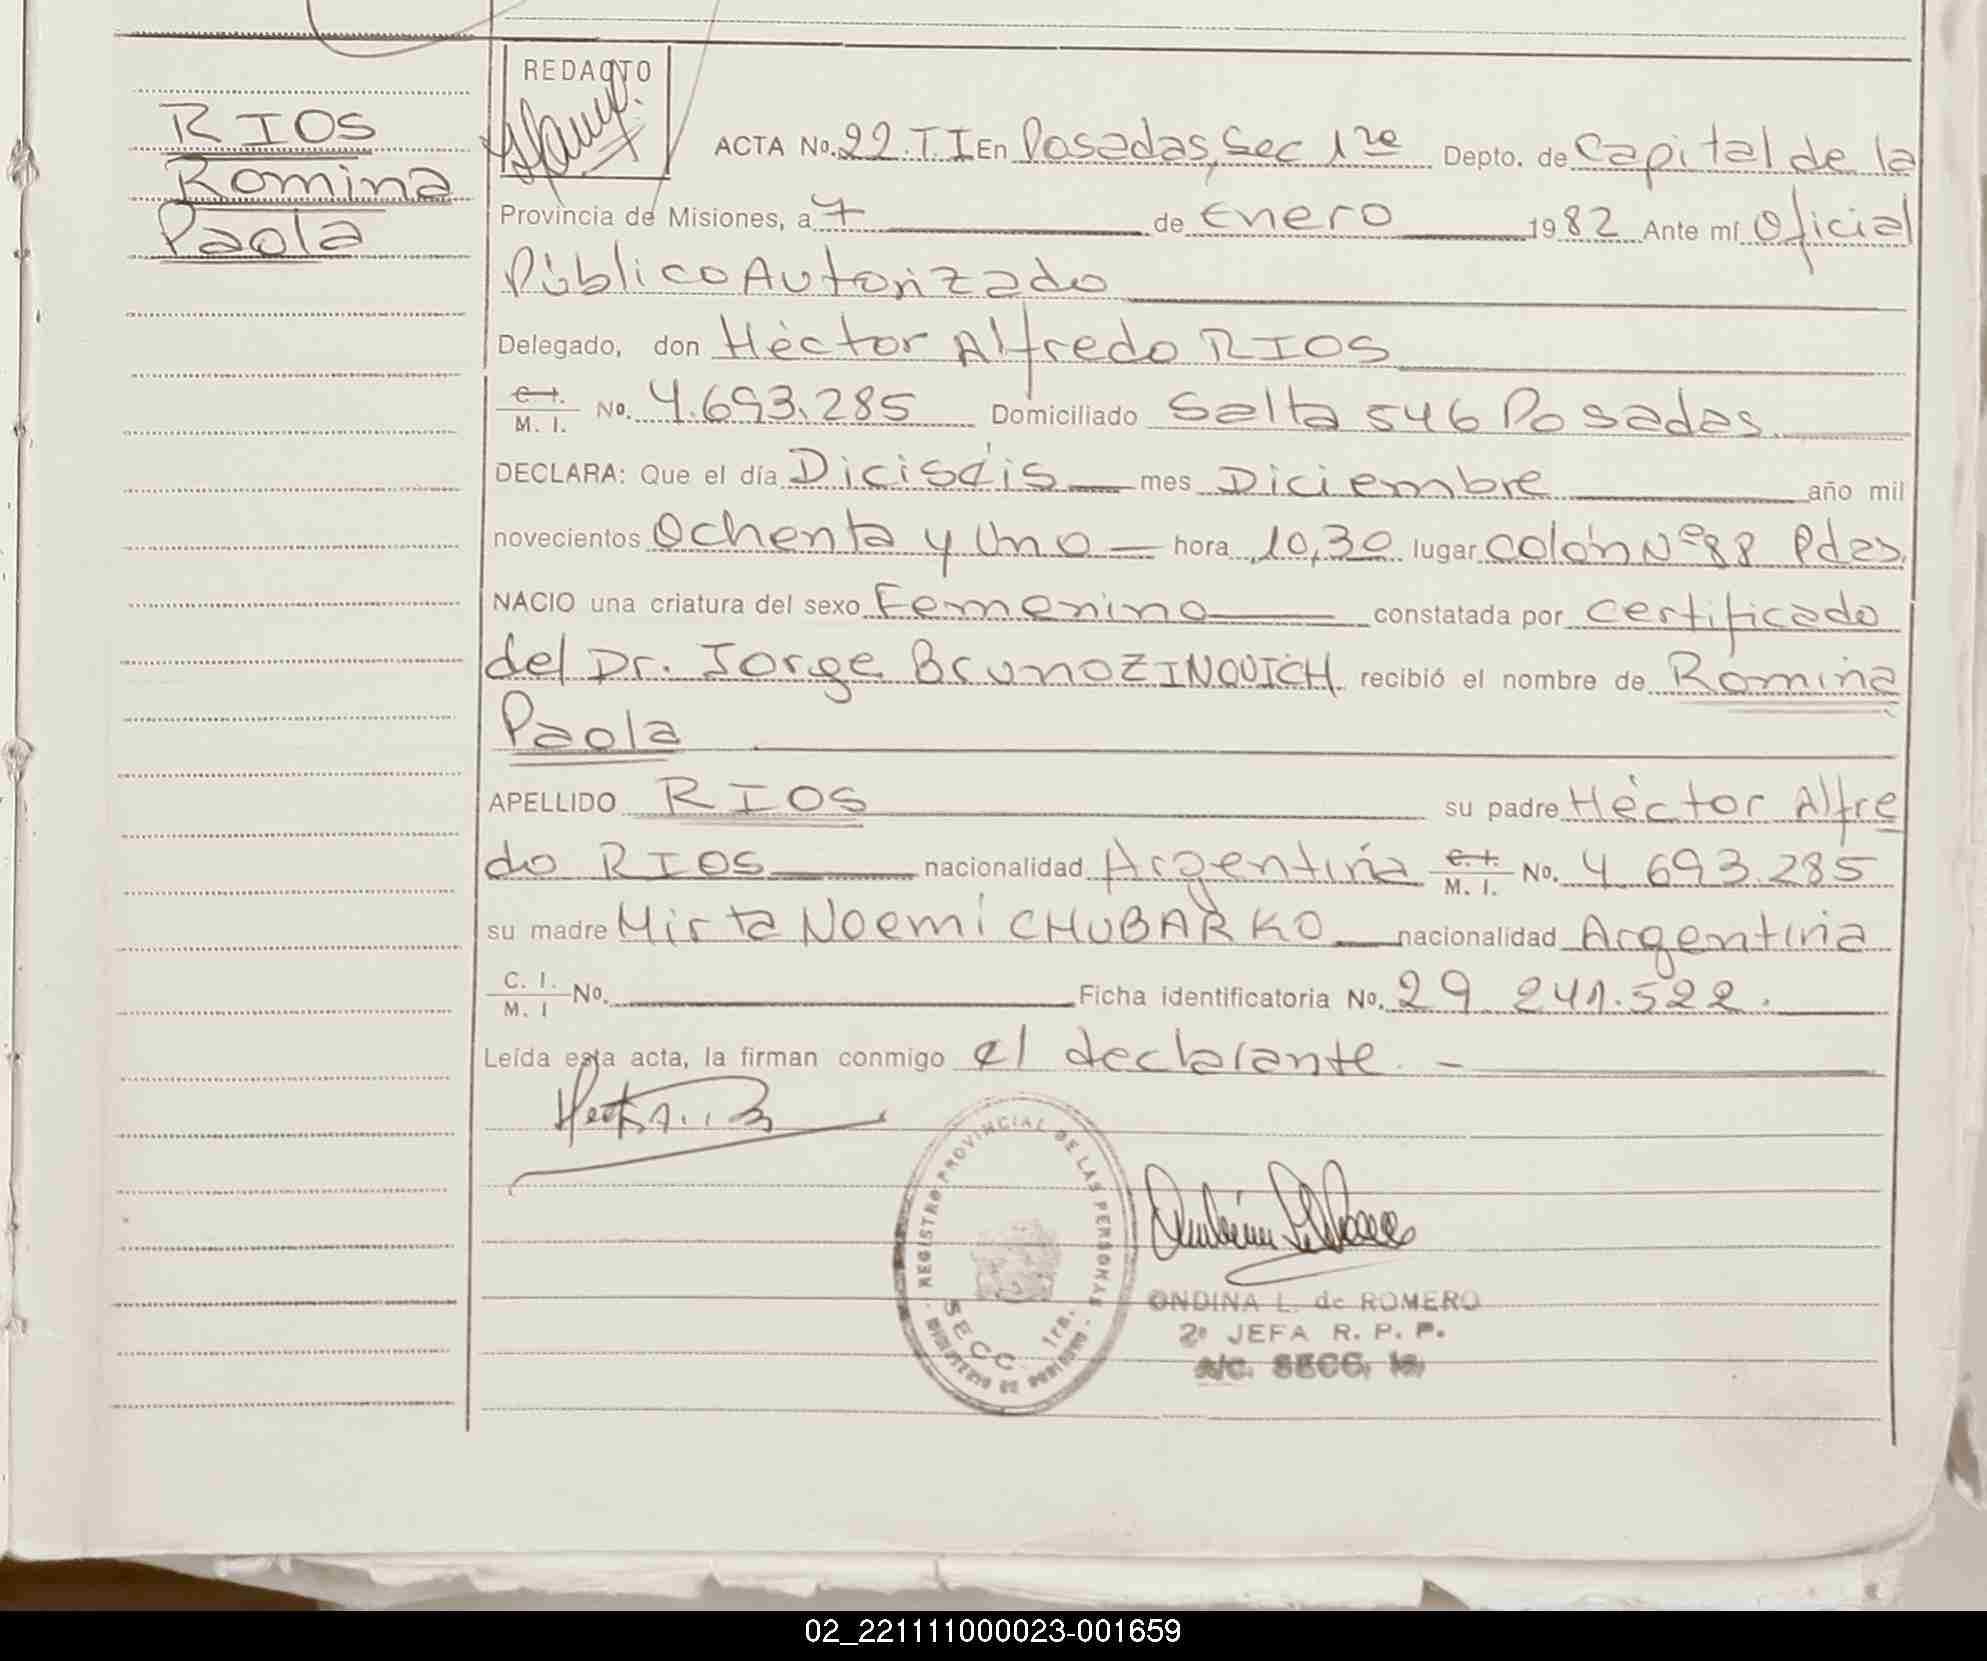 RIOS
Romina
Paola
REDACTO
ACTA No. 22. T. I En Posadas, Sec 1ra Depto. de Capital de la
Provincia de Misiones, a 7 de Enero 1982 Ante mí Oficial
Público Autorizado
Delegado, don Héctor Alfredo RIOS
C. I.
M. I. No. 4.693.285 Domiciliado Salta 546 Posadas.
DECLARA: Que el día Diciséis mes Diciembre año mil
novecientos Ochenta y Uno hora 10,30 lugar Colón Nº 88 Pdas.
NACIO una criatura del sexo Femenino constatada por certificado
del Dr. Jorge Bruno ZINOVICH recibió el nombre de Romina
Paola
APELLIDO RIOS su padre Héctor Alfre
do RIOS nacionalidad Argentina C. I. M. I. No. 4 693.285
su madre Mirta Noemí CHUBARKO nacionalidad Argentina
C. I.
M. I No. Ficha identificatoria No. 29 241.522.
Leída esta acta, la firman conmigo el declarante. -
REGISTRO PROVINCIAL DE LAS PERSONAS
SECC. 1ra.
MINISTERIO DE GOBIERNO
ONDINA L. de ROMERO
2º JEFA R. P. P.
A/C. SECC. 1a.
02_221111000023-001659